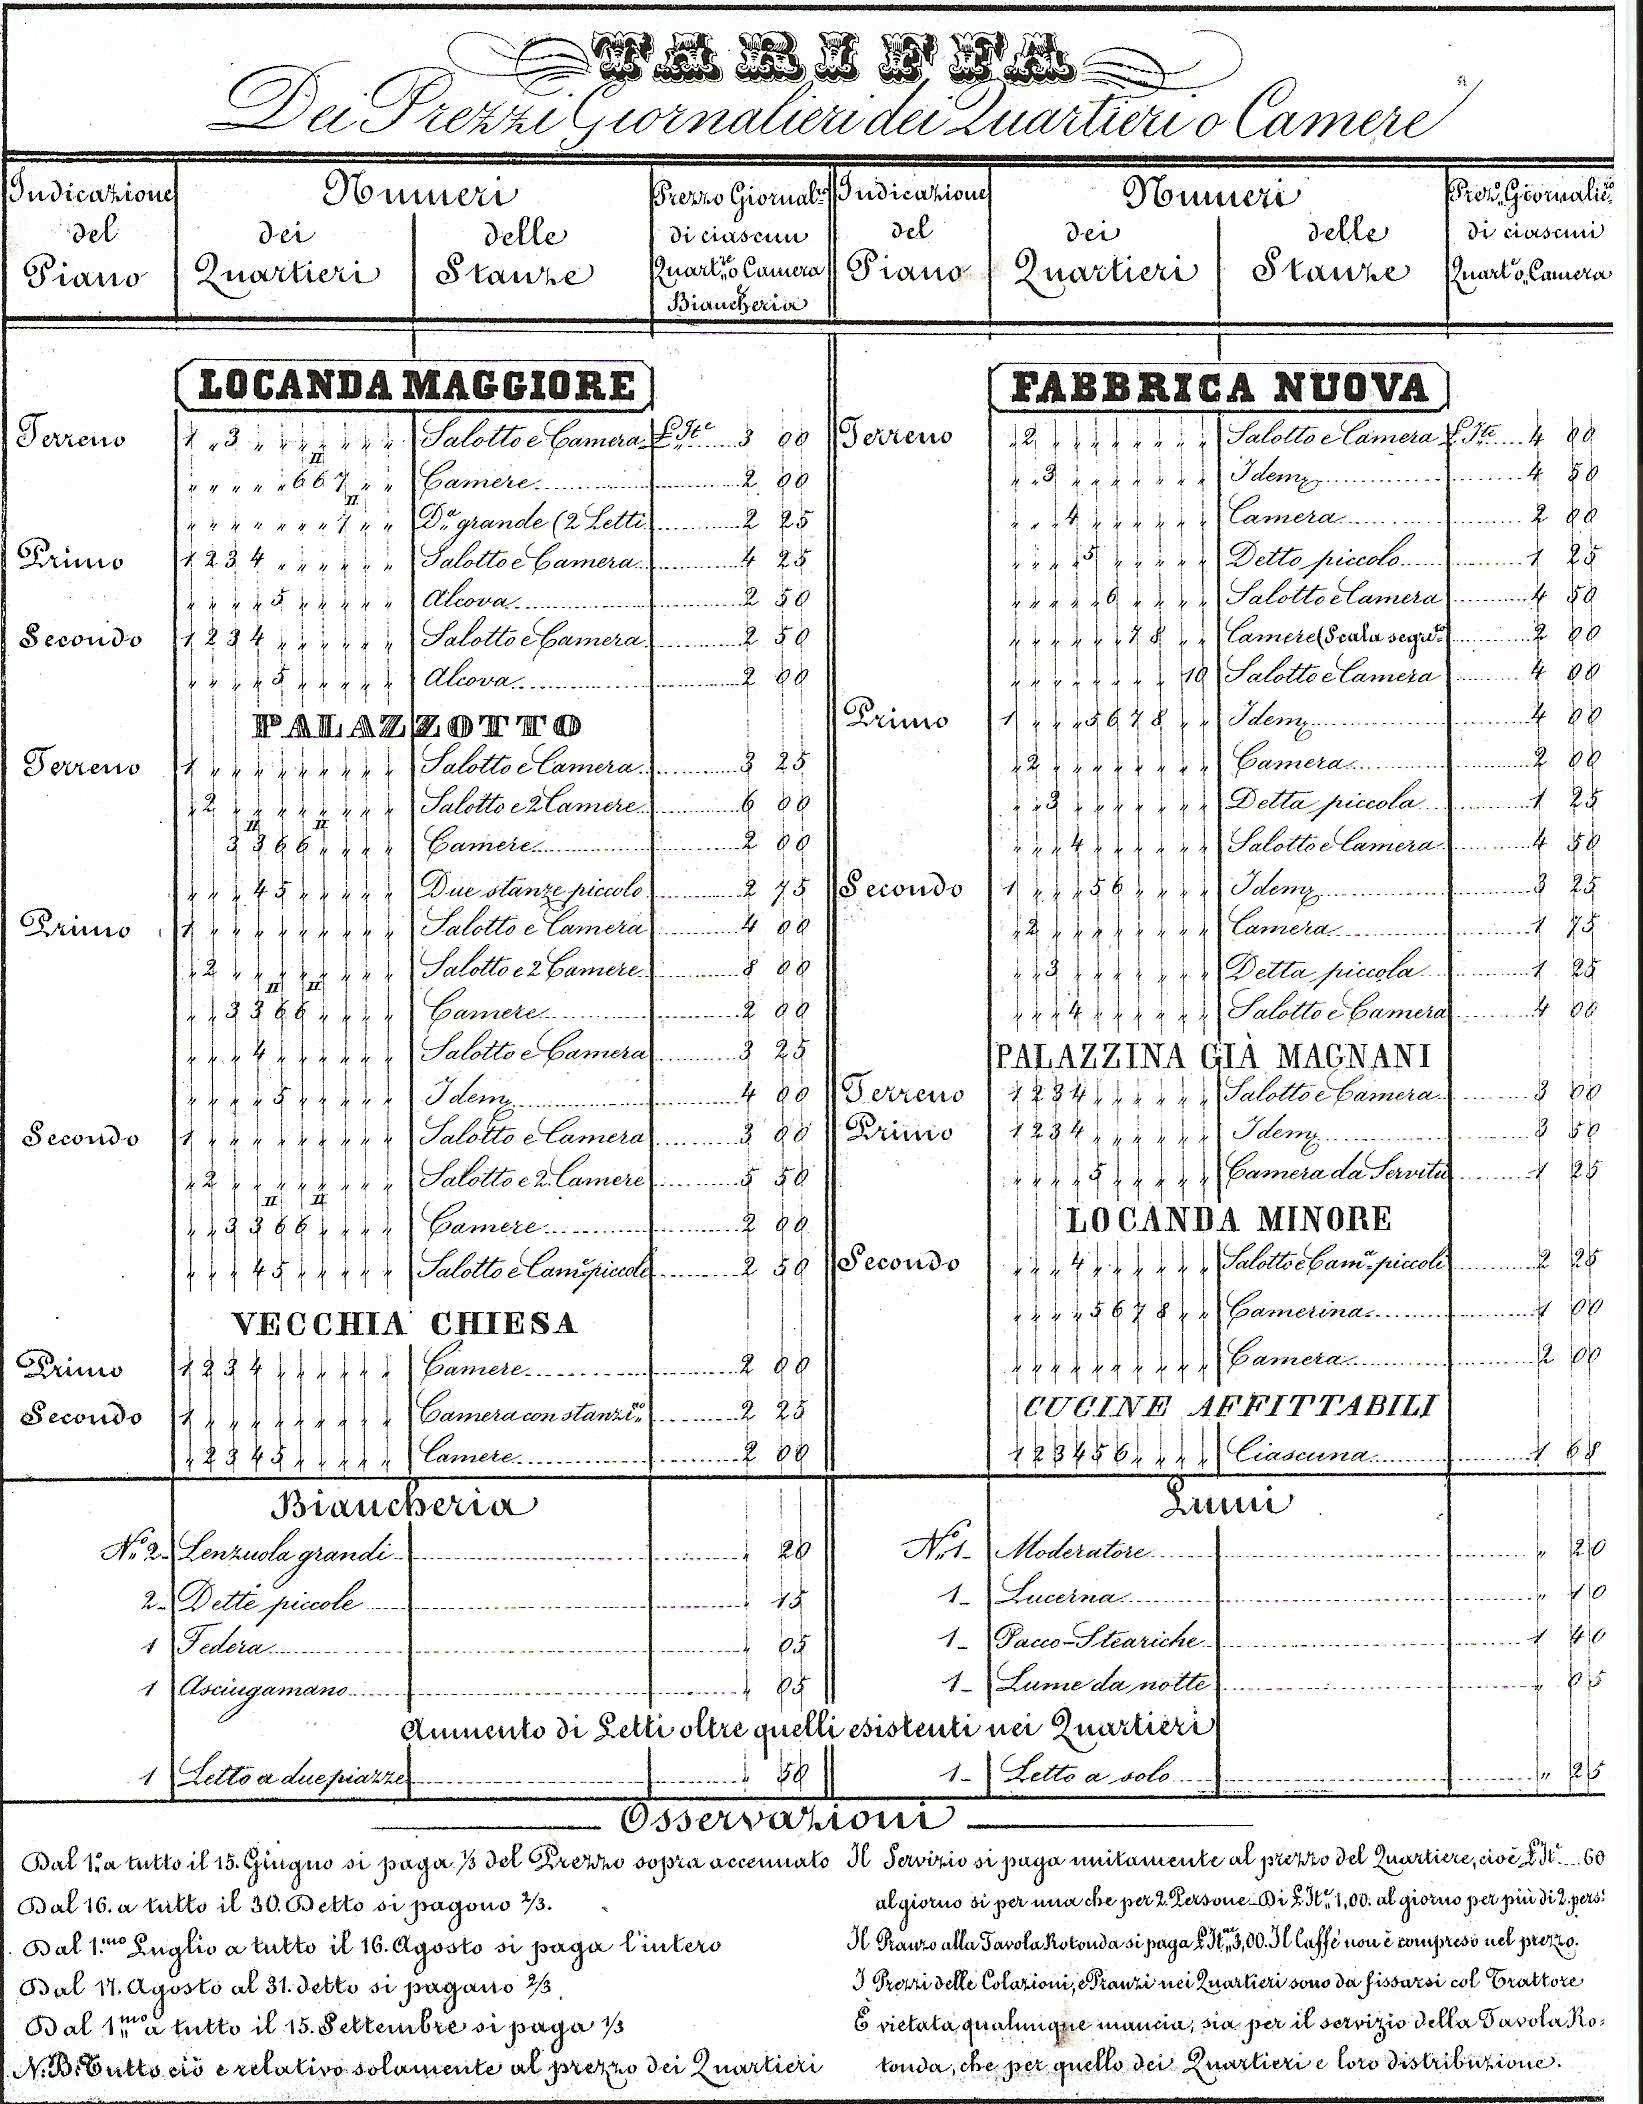 TARIFFA
Dei Prezzi Giornalieri dei Quartieri o Camere
Indicazione del Piano
Numeri
dei Quartieri
delle Stanze
Prezzo Giornal.re di ciascun Quart.re o Camera e Biancheria
Indicazione del Piano
Numeri
dei Quartieri
delle Stanze
Prez.o Giornalie.o di ciascun Quart.e o Camera
LOCANDA MAGGIORE
Terreno 1 " 3 Salotto e Camera £ It.e 3 00
6 6II 7 Camere 2 00
7II D.a grande (2 Letti 2 25
Primo 1 2 3 4 Salotto e Camera 4 25
5 Alcova 2 50
Secondo 1 2 3 4 Salotto e Camera 2 50
5 Alcova 2 00
PALAZZOTTO
Terreno 1 Salotto e Camera 3 25
2 Salotto e 2 Camere 6 00
3 3II 6 6II Camere 2 00
4 5 Due stanze piccolo 2 75
Primo 1 Salotto e Camera 4 00
2 Salotto e 2 Camere 8 00
3 3II 6 6II Camere 2 00
4 Salotto e Camera 3 25
5 Idem 4 00
Secondo 1 Salotto e Camera 3 00
2 Salotto e 2 Camere 5 50
3 3II 6 6II Camere 2 00
4 5 Salotto e Cam.e piccoli 2 50
VECCHIA CHIESA
Primo 1 2 3 4 Camere 2 00
Secondo 1 Camera con stanzi.no 2 25
2 3 4 5 Camere 2 00
FABBRICA NUOVA
Terreno 2 Salotto e Camera £ Ite 4 00
3 Idem 4 50
4 Camera 2 00
5 Detto piccolo 1 25
6 Salotto e Camera 4 50
7 8 Camere (Scala segre.ta 2 00
10 Salotto e Camera 4 00
Primo 1 5 6 7 8 Idem 4 00
2 Camera 2 00
3 Detta piccola 1 25
4 Salotto e Camera 4 50
Secondo 1 5 6 Idem 3 25
2 Camera 1 75
3 Detta piccola 1 25
4 Salotto e Camera 4 00
PALAZZINA GIÀ MAGNANI
Terreno 1 2 3 4 Salotto e Camera 3 00
Primo 1 2 3 4 Idem 3 50
5 Camera da Servitù 1 25
LOCANDA MINORE
Secondo 4 Salotto e Cam.a piccoli 2 25
5 6 7 8 Camerina 1 00
Camera 2 00
CUCINE AFFITTABILI
1 2 3 4 5 6 Ciascuna 1 68
Biancheria
N.o 2 Lenzuola grandi " 20
2 Dette piccole " 15
1 Federa " 05
1 Asciugamano " 05
Lumi
N.o 1 Moderatore " 20
1 Lucerna " 10
1 Pacco-Steariche 1 40
1 Lume da notte " 05
Aumento di Letti oltre quelli esistenti nei Quartieri
1 Letto a due piazze " 50
1 Letto a solo " 25
Osservazioni
Dal 1.o a tutto il 15. Giugno si paga 1/3 del Prezzo sopra accennato
Dal 16. a tutto il 30. Detto si pagono 2/3.
Dal 1.mo Luglio a tutto il 16. Agosto si paga l'intero
Dal 17. Agosto al 31. detto si pagano 2/3
Dal 1.mo a tutto il 15. Settembre si paga 1/3
N.B. Tutto ciò e relativo solamente al prezzo dei Quartieri
Il Servizio si paga unitamente al prezzo del Quartiere, cioè £ It.e 60
al giorno si per una che per 2 Persone. Di £ It.e 1,00. al giorno per più di 2. pers:
Il Pranzo alla Tavola Rotonda si paga £ It.ne 3,00. Il Caffè non è compreso nel prezzo.
I Prezzi delle Colazioni, e Pranzi nei Quartieri sono da fissarsi col Trattore
È vietata qualunque mancia, sia per il servizio della Tavola Ro=
tonda, che per quello dei Quartieri e loro distribuzione.